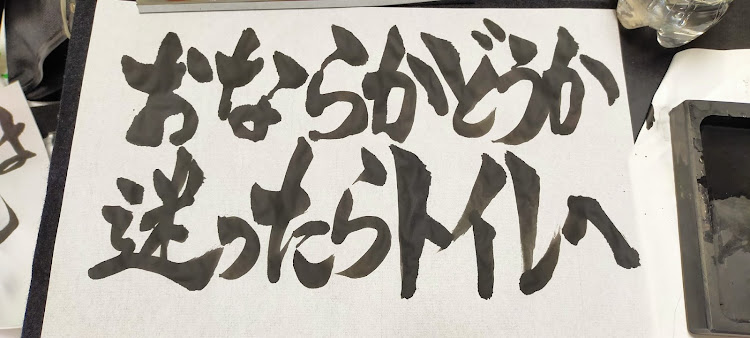 おならかどうか
迷ったらトイレへ